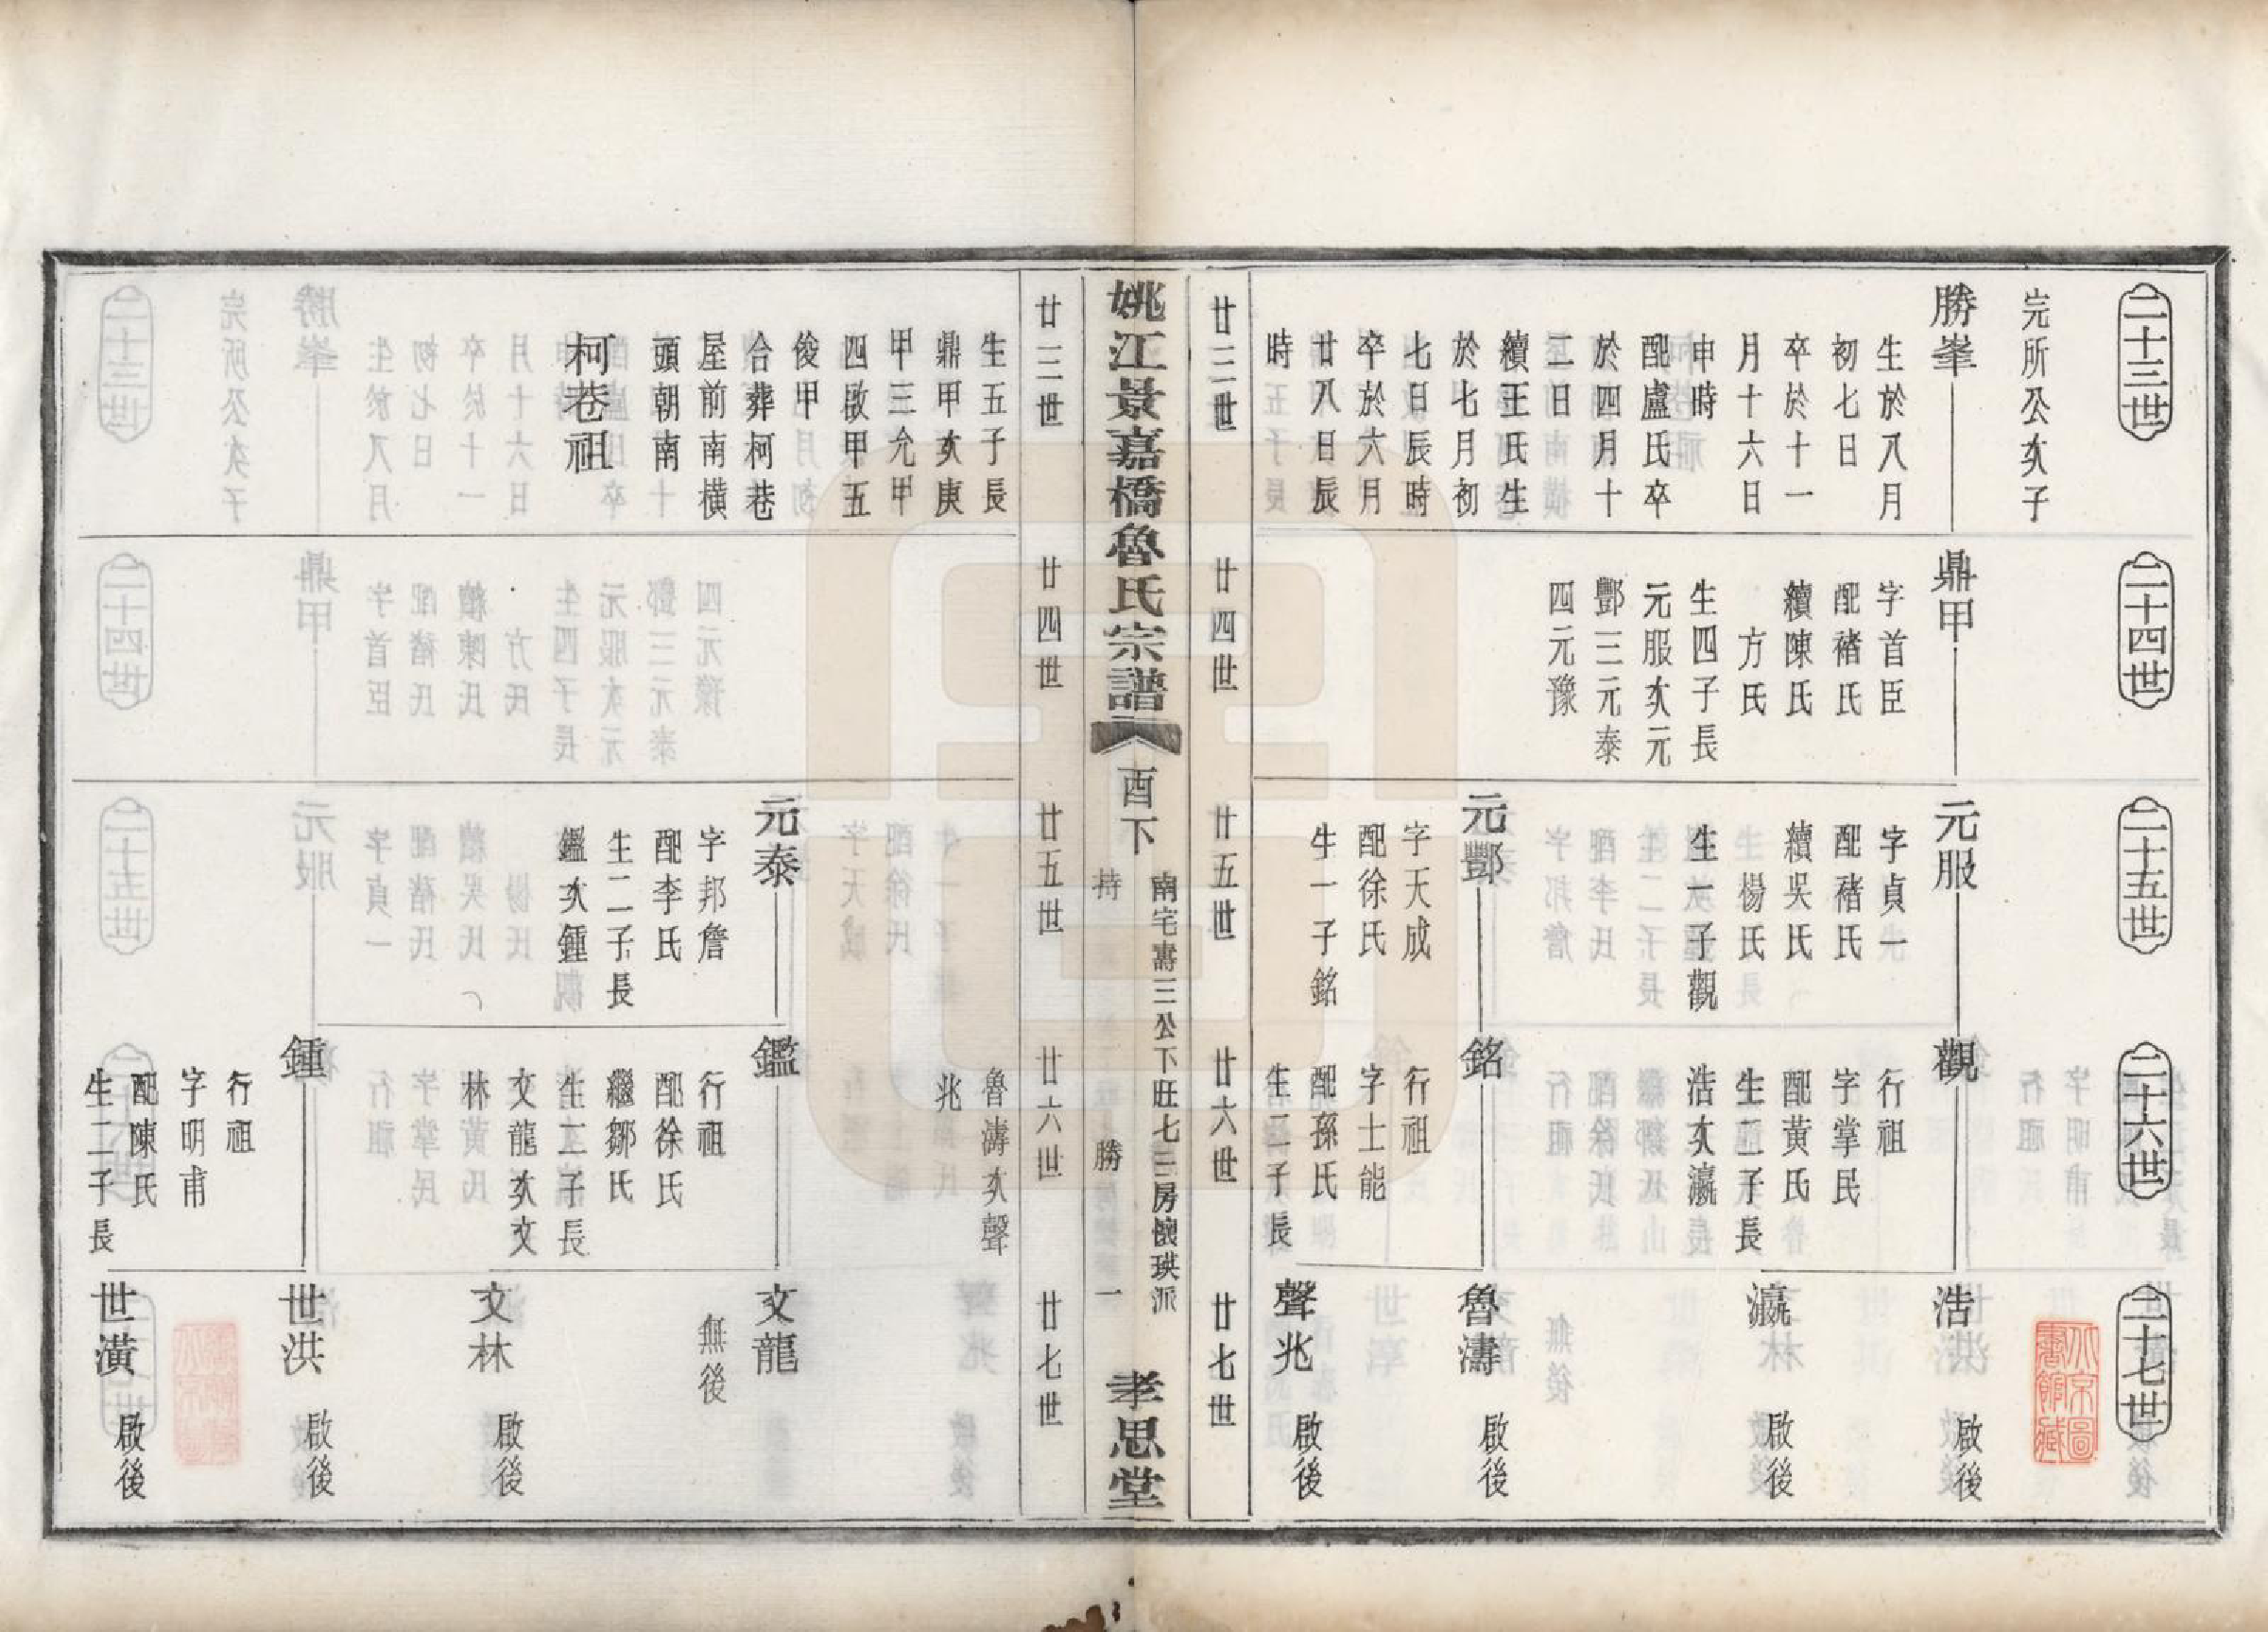 二十三世
完所公次子
勝峯
生於八月
初七日
卒於十一
月十六日
申時
配盧氏卒
於四月十
二日
續王氏生
於七月初
七日辰時
卒於六月
廿八日辰
時
二十四世
鼎甲
字首臣
配褚氏
續陳氏
方氏
生四子長
元服次元
酆三元泰
四元豫
二十五世
元服
字貞一
配褚氏
續吳氏
生楊氏
生一子觀
元酆
字天成
配徐氏
生一子銘
二十六世
觀
行祖
字掌民
配黃氏
生二子長
浩次瀛
銘
行祖
字士能
配孫氏
生二子長
二十七世
浩
啟後
瀛
啟後
魯濤
啟後
聲兆
啟後
廿三世
廿四世
廿五世
廿六世
廿七世
姚江景嘉橋魯氏宗譜
酉下
南宅壽三公下旺七三房懷珙派
持
勝
一
孝思堂
廿三世
廿四世
廿五世
廿六世
廿七世
生五子長
鼎甲次庚
甲三允甲
四啟甲五
俊甲
合葬柯巷
屋前南橫
頭朝南
柯巷祖
元泰
字邦詹
配李氏
生二子長
鑑次鍾
魯濤次聲
兆
鑑
行祖
配徐氏
繼鄒氏
生二子長
文龍次文
林
鍾
行祖
字明甫
配陳氏
生二子長
文龍
無後
文林
啟後
世洪
啟後
世潢
啟後